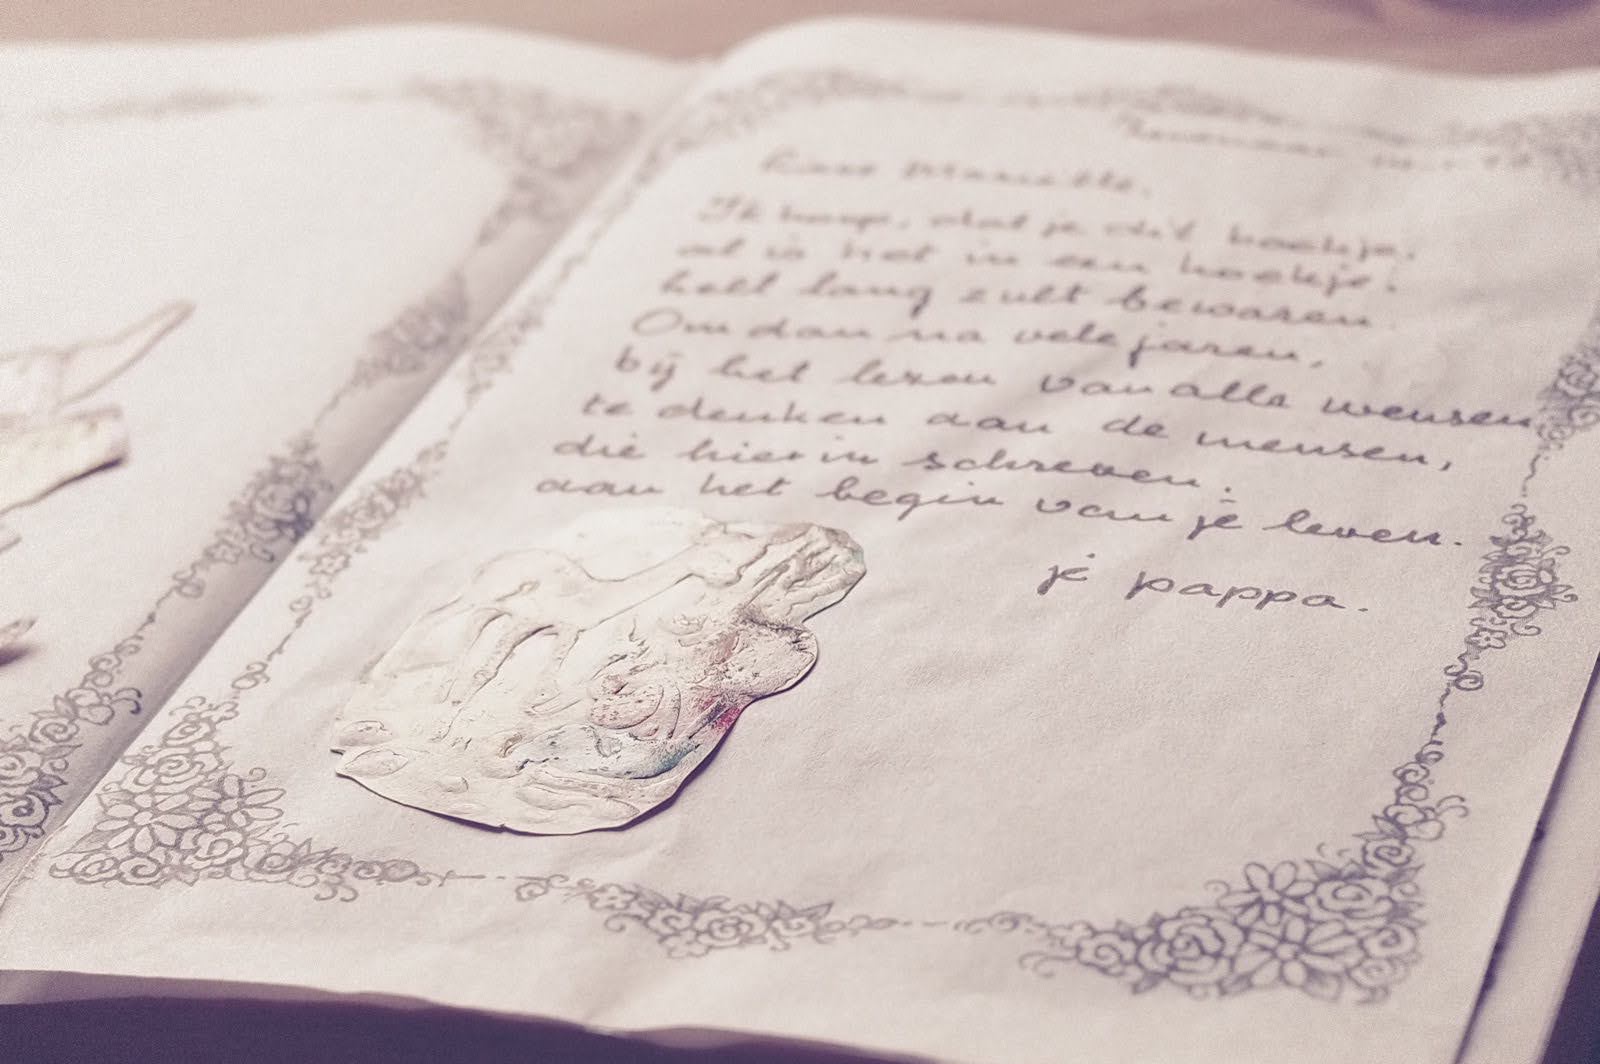 Ik hoop, dat je dit boekje,
al is het in een hoekje;
heel lang zult bewaren.
Om dan na vele jaren,
bij het lezen van alle wensen
te denken aan de mensen,
die hierin schreven.
aan het begin van je leven.
je pappa.